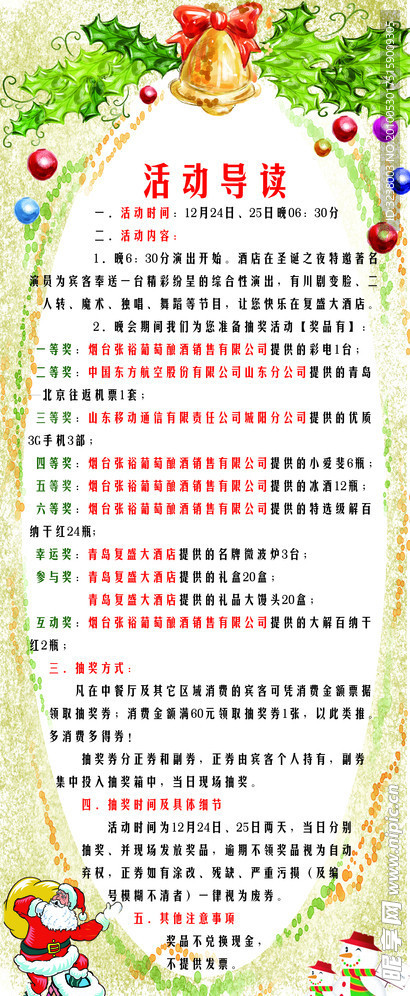 活动导读
一．活动时间：12月24日、25日晚06：30分
二．活动内容：
1．晚6：30分演出开始。酒店在圣诞之夜特邀著名
演员为宾客奉送一台精彩纷呈的综合性演出，有川剧变脸、二
人转、魔术、独唱、舞蹈等节目，让您快乐在复盛大酒店。
2．晚会期间我们为您准备抽奖活动【奖品有】：
一等奖：烟台张裕葡萄酿酒销售有限公司提供的彩电1台；
二等奖：中国东方航空股份有限公司山东分公司提供的青岛
—北京往返机票1套；
三等奖：山东移动通信有限责任公司城阳分公司提供的优质
3G手机3部；
四等奖：烟台张裕葡萄酿酒销售有限公司提供的小爱斐6瓶；
五等奖：烟台张裕葡萄酿酒销售有限公司提供的冰酒12瓶；
六等奖：烟台张裕葡萄酿酒销售有限公司提供的特选级解百
纳干红24瓶；
幸运奖：青岛复盛大酒店提供的名牌微波炉3台；
参与奖：青岛复盛大酒店提供的礼盒20盒；
青岛复盛大酒店提供的礼品大馒头20盒；
互动奖：烟台张裕葡萄酿酒销售有限公司提供的大解百纳干
红2瓶；
三．抽奖方式：
凡在中餐厅及其它区域消费的宾客可凭消费金额票据
领取抽奖券；消费金额满60元领取抽奖券1张，以此类推。
多消费多得券！
抽奖券分正券和副券，正券由宾客个人持有，副券
集中投入抽奖箱中，当日现场抽奖。
四．抽奖时间及具体细节
活动时间为12月24日、25日两天，当日分别
抽奖、并现场发放奖品，逾期不领奖品视为自动
弃权，正券如有涂改、残缺、严重污损（及编
号模糊不清者）一律视为废券。
五．其他注意事项
奖品不兑换现金，
不提供发票。
昵享网 www.nipic.cn